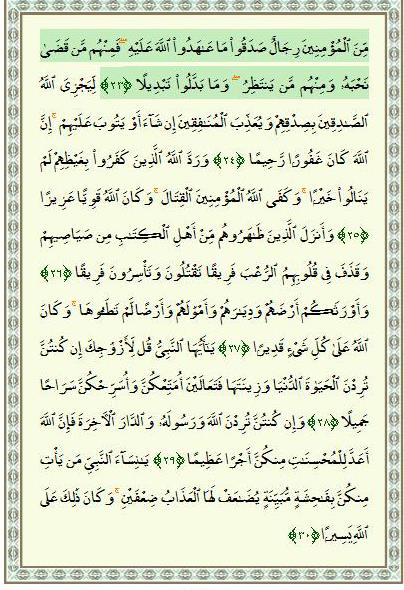 مِّنَ ٱلْمُؤْمِنِينَ رِجَالٌ صَدَقُوا۟ مَا عَـٰهَدُوا۟ ٱللَّهَ عَلَيْهِ ۖ فَمِنْهُم مَّن قَضَىٰ
نَحْبَهُۥ وَمِنْهُم مَّن يَنتَظِرُ ۖ وَمَا بَدَّلُوا۟ تَبْدِيلًا ﴿٢٣﴾ لِّيَجْزِىَ ٱللَّهُ
ٱلصَّـٰدِقِينَ بِصِدْقِهِمْ وَيُعَذِّبَ ٱلْمُنَـٰفِقِينَ إِن شَآءَ أَوْ يَتُوبَ عَلَيْهِمْ ۚ إِنَّ
ٱللَّهَ كَانَ غَفُورًا رَّحِيمًا ﴿٢٤﴾ وَرَدَّ ٱللَّهُ ٱلَّذِينَ كَفَرُوا۟ بِغَيْظِهِمْ لَمْ
يَنَالُوا۟ خَيْرًا ۚ وَكَفَى ٱللَّهُ ٱلْمُؤْمِنِينَ ٱلْقِتَالَ ۚ وَكَانَ ٱللَّهُ قَوِيًّا عَزِيزًا
﴿٢٥﴾ وَأَنزَلَ ٱلَّذِينَ ظَـٰهَرُوهُم مِّنْ أَهْلِ ٱلْكِتَـٰبِ مِن صَيَاصِيهِمْ
وَقَذَفَ فِى قُلُوبِهِمُ ٱلرُّعْبَ فَرِيقًا تَقْتُلُونَ وَتَأْسِرُونَ فَرِيقًا ﴿٢٦﴾
وَأَوْرَثَكُمْ أَرْضَهُمْ وَدِيَـٰرَهُمْ وَأَمْوَٰلَهُمْ وَأَرْضًا لَّمْ تَطَـُٔوهَا ۚ وَكَانَ
ٱللَّهُ عَلَىٰ كُلِّ شَىْءٍ قَدِيرًا ﴿٢٧﴾ يَـٰٓأَيُّهَا ٱلنَّبِىُّ قُل لِّأَزْوَٰجِكَ إِن كُنتُنَّ
تُرِدْنَ ٱلْحَيَوٰةَ ٱلدُّنْيَا وَزِينَتَهَا فَتَعَالَيْنَ أُمَتِّعْكُنَّ وَأُسَرِّحْكُنَّ سَرَاحًا
جَمِيلًا ﴿٢٨﴾ وَإِن كُنتُنَّ تُرِدْنَ ٱللَّهَ وَرَسُولَهُۥ وَٱلدَّارَ ٱلْـَٔاخِرَةَ فَإِنَّ ٱللَّهَ
أَعَدَّ لِلْمُحْسِنَـٰتِ مِنكُنَّ أَجْرًا عَظِيمًا ﴿٢٩﴾ يَـٰنِسَآءَ ٱلنَّبِىِّ مَن يَأْتِ
مِنكُنَّ بِفَـٰحِشَةٍ مُّبَيِّنَةٍ يُضَـٰعَفْ لَهَا ٱلْعَذَابُ ضِعْفَيْنِ ۚ وَكَانَ ذَٰلِكَ عَلَى
ٱللَّهِ يَسِيرًا ﴿٣٠﴾